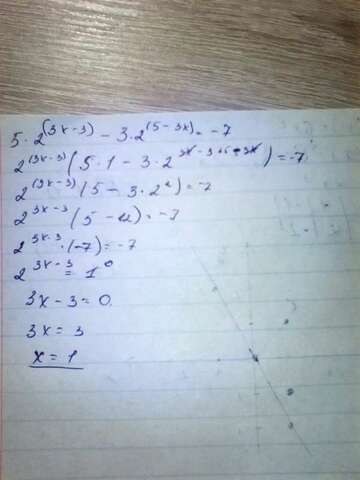 5 · 2^(3x-3) - 3 · 2^(5-3x) = -7
2^(3x-3) (5 · 1 - 3 · 2^3x-3+5-3x) = -7
2^(3x-3) (5 - 3 · 2²) = -7
2^3x-3 (5 - 12) = -7
2^3x-3 · (-7) = -7
2^3x-3 = 1^0
3x - 3 = 0
3x = 3
x = 1